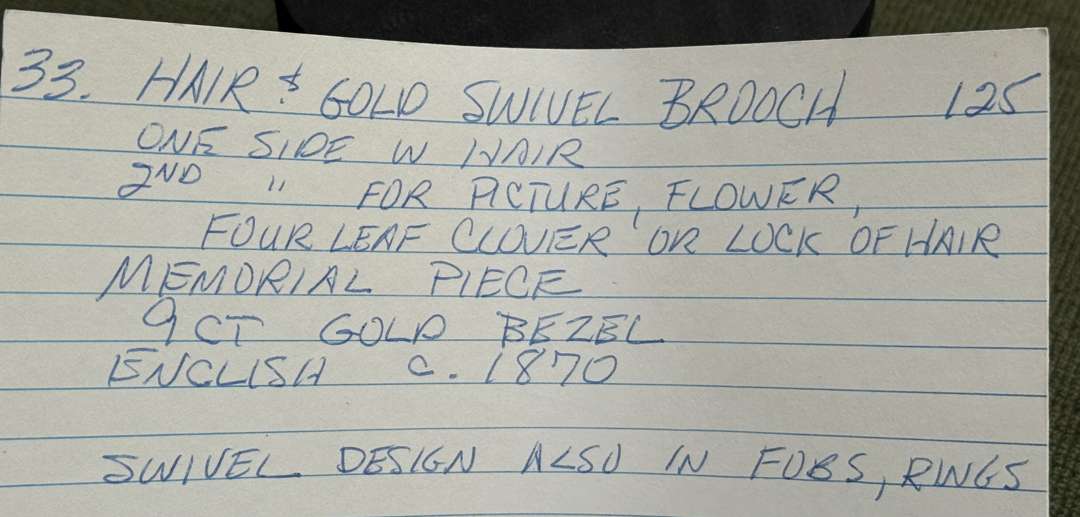 33. HAIR & GOLD SWIVEL BROOCH 125
ONE SIDE W HAIR
2ND " FOR PICTURE, FLOWER,
FOUR LEAF CLOVER OR LOCK OF HAIR
MEMORIAL PIECE
9CT GOLD BEZEL
ENGLISH C. 1870
SWIVEL DESIGN ALSO IN FOBS, RINGS